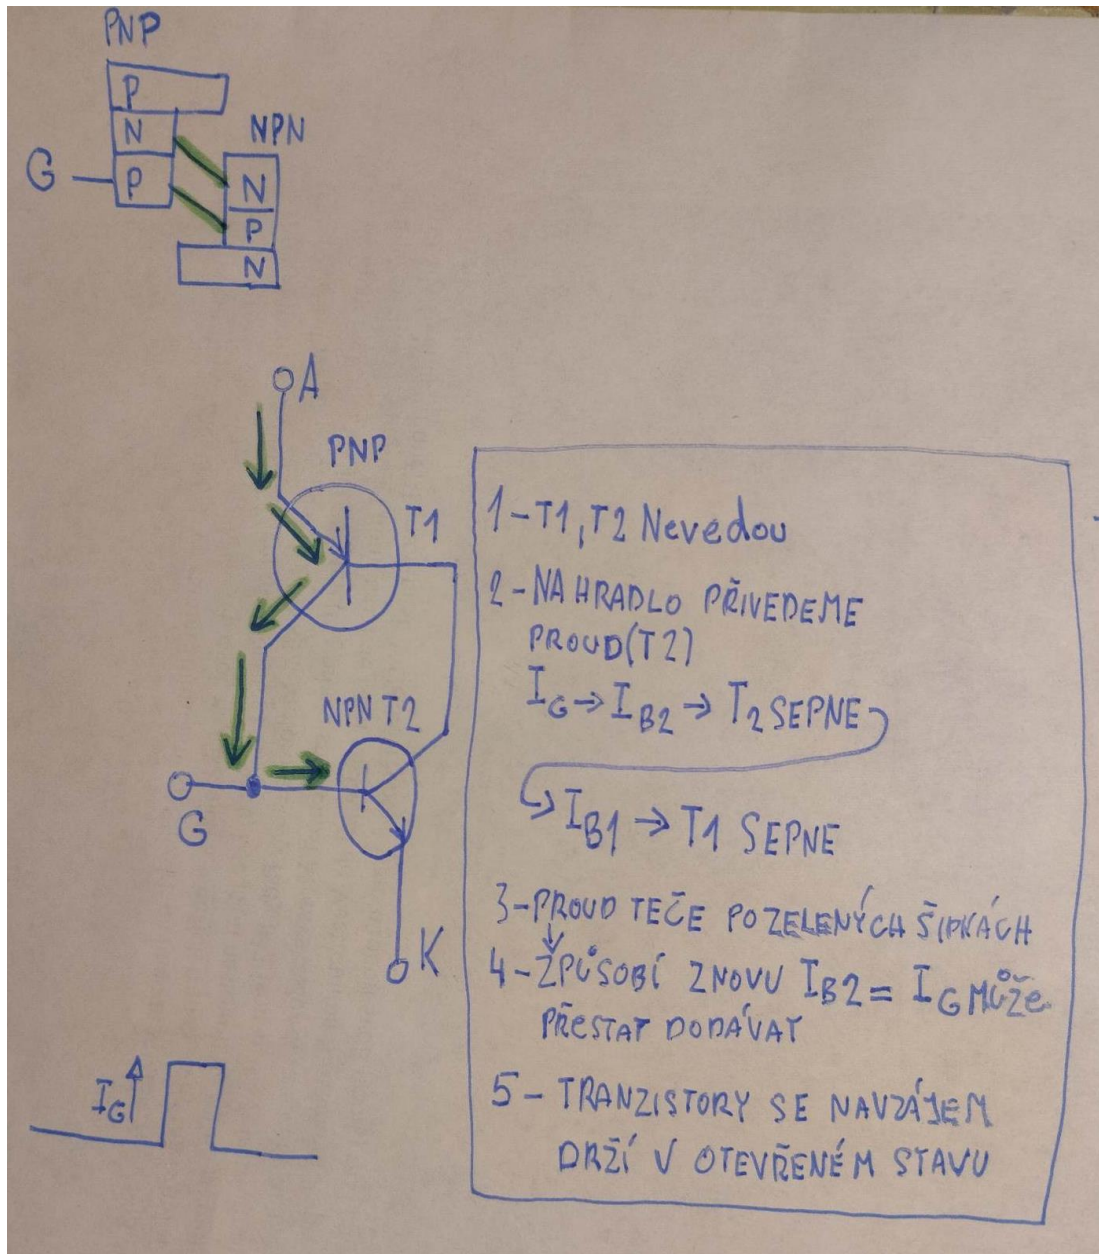 PNP
P
N
NPN
G
P
N
P
N
A
PNP
T1
NPN T2
G
K
I_G
1-T1,T2 Nevedou
2-NA HRADLO PŘIVEDEME
PROUD(T2)
I_G → I_B2 → T_2 SEPNE
I_B1 → T1 SEPNE
3-PROUD TEČE PO ZELENÝCH ŠIPKÁCH
4-ZPŮSOBÍ ZNOVU I_B2 = I_G MŮŽE
PŘESTAT DODÁVAT
5- TRANZISTORY SE NAVZÁJEM
DRŽÍ V OTEVŘENÉM STAVU